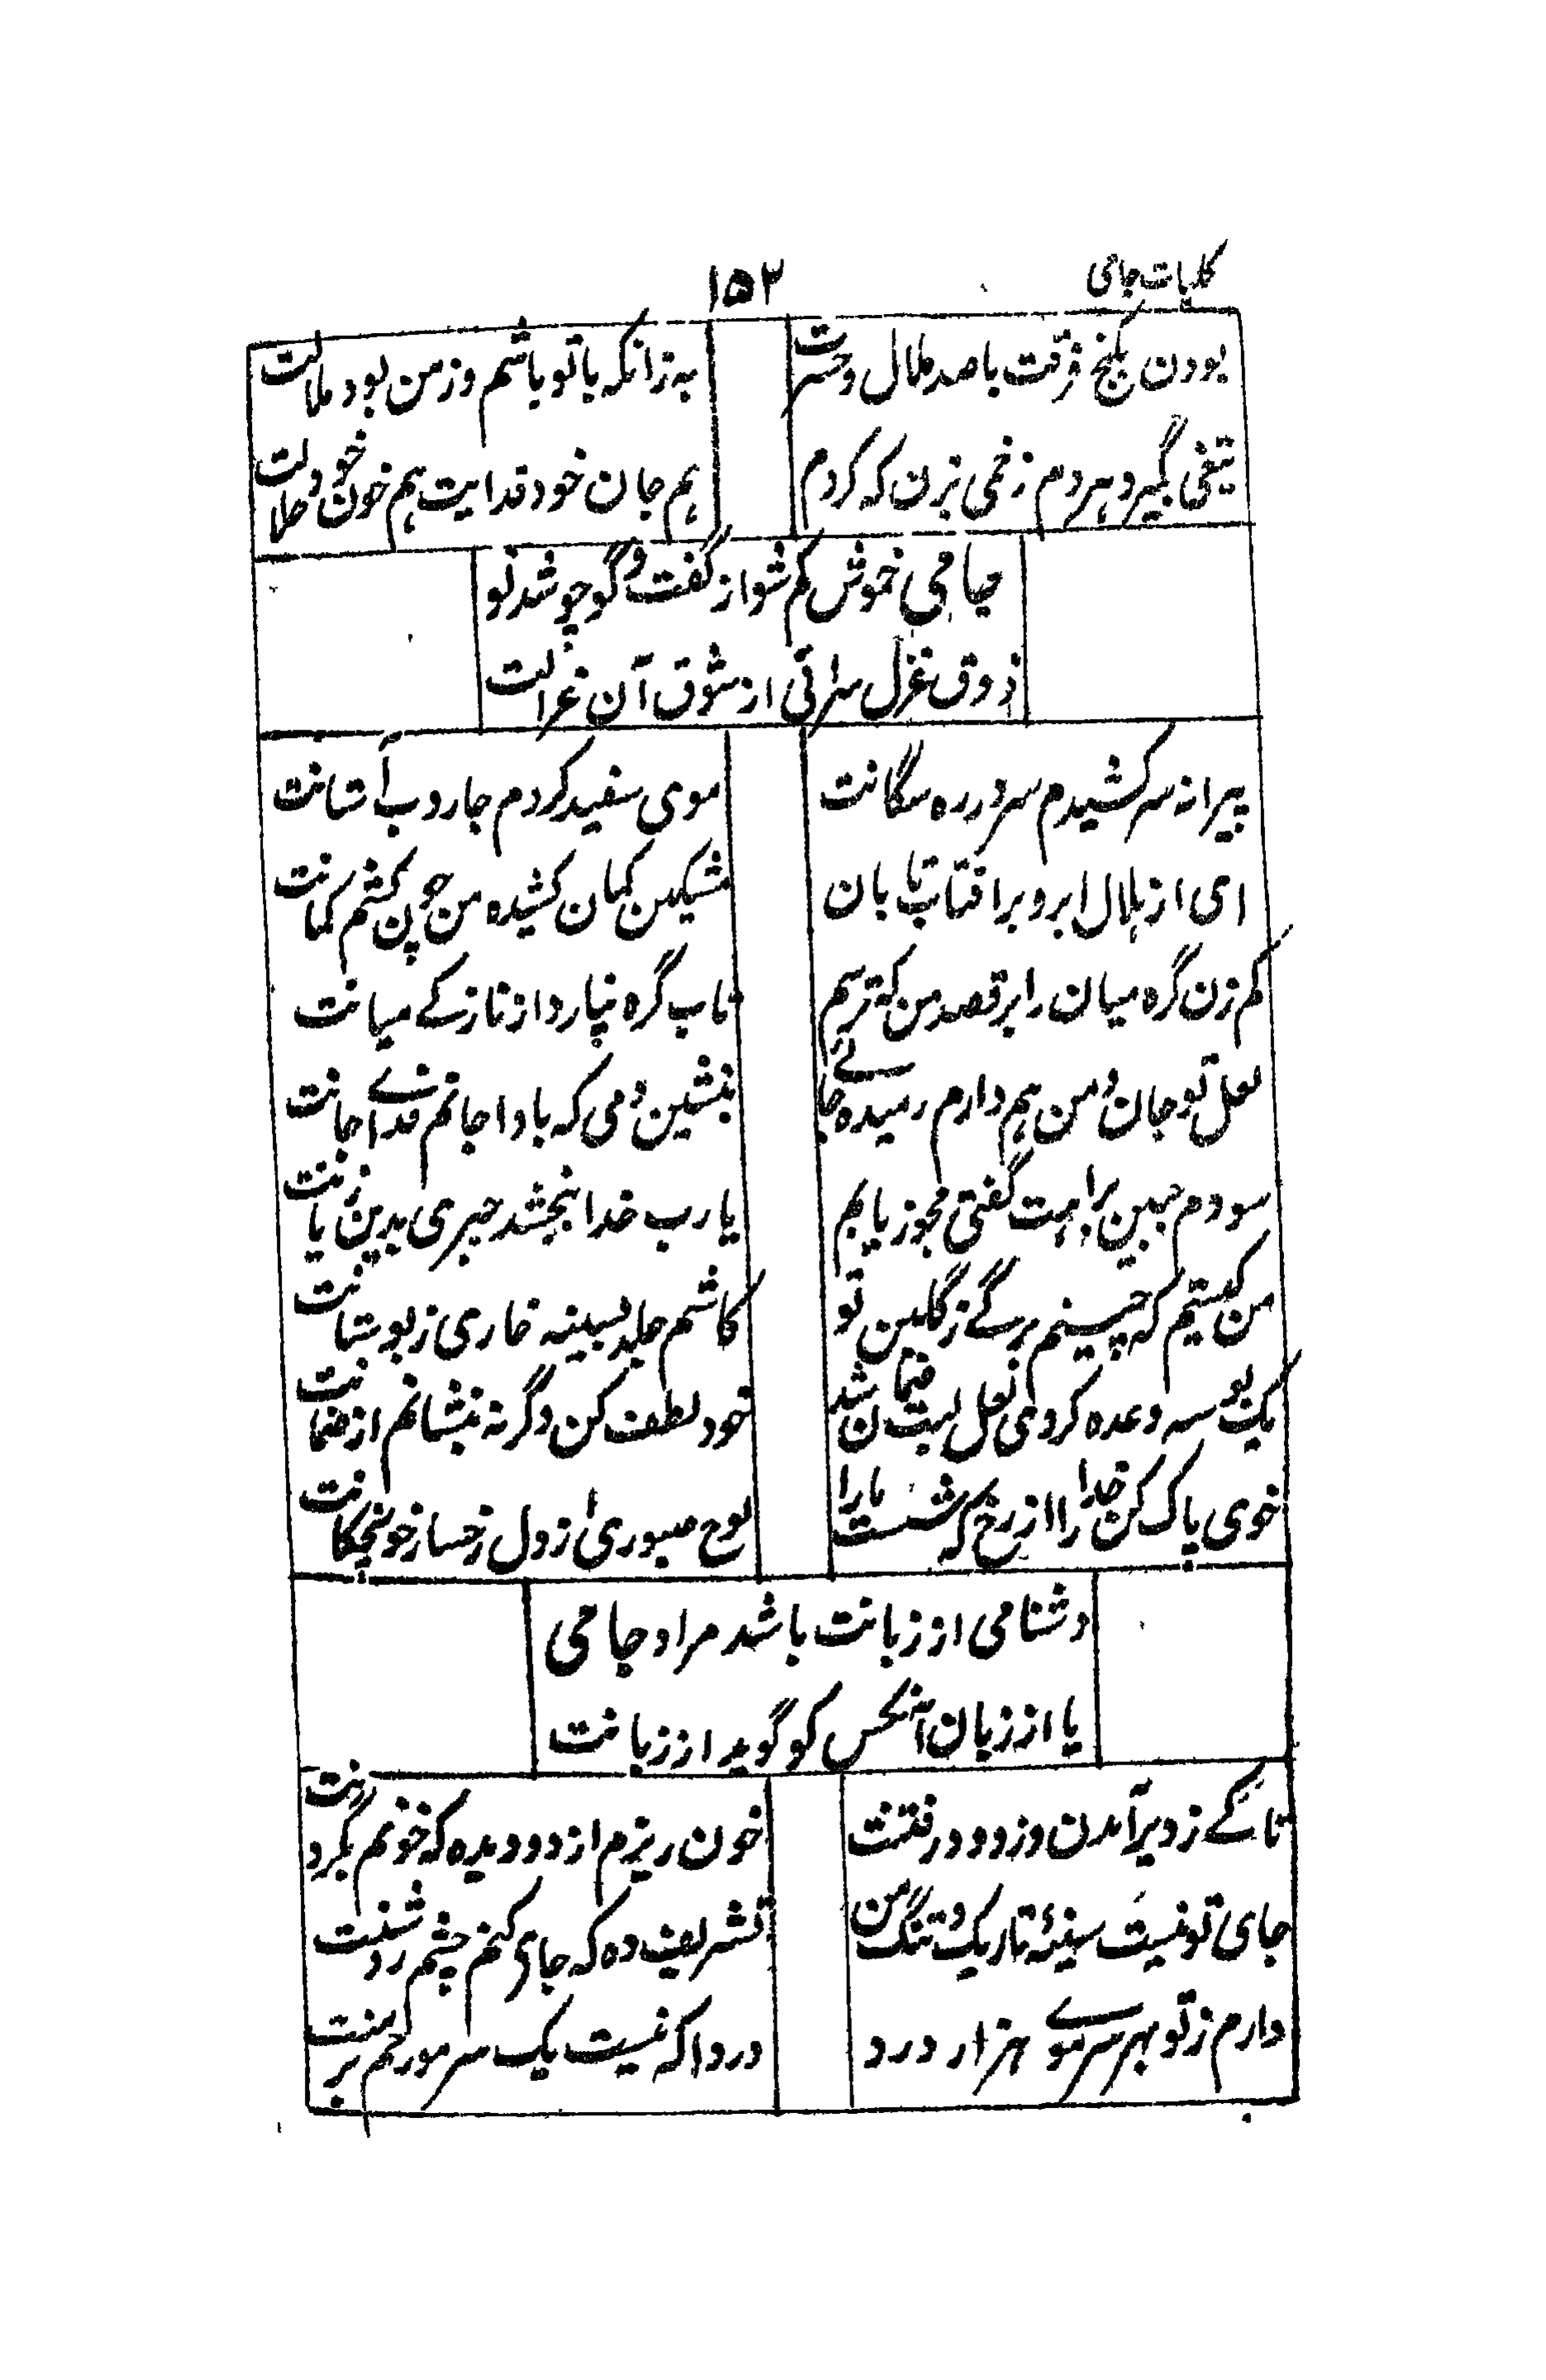 کلیات جامی
۱۵۲
بودن بکنج فرقت با صد ملال و حسرت
به زانکه با تو باشم وز من بود ملالت
تیغی بگیر و هر دم زخمی بزن که کردم
هم جان خود فدایت هم خون خود حلالت
جامی خموش کم شو از گفت و گو چو شد نو
ذوق غزل سرائی از شوق آن غزالت
پیرانه سر کشیدم سر در ره سگانت
موی سفید کردم جاروب آستانت
ای از هلال ابرو بر آفتاب تابان
مشکین کمان کشیده من چون کشم کمانت
کم زن گره میان را بر قصد من که ترسم
تاب گره نیارد از نازکے میانت
لعل تو جان و من هم دارم رسیده جانے
بنشین دمی که بادا جانم فدای جانت
سودم جبین براهت گفتی مجوز پایم
یارب خدا بخشد جبری بدین زیانت
من کیستم که چینم برگے ز گلبن تو
کاشم خلد بسینه خاری ز بوستانت
یک بوسه وعده کردی لعل لبت ضمان شد
خود لطف کن وگرنه بنشانم از ضمانت
خوی پاک کن خدا را از رخ که شست ما را
لوح صبوری از دل رخسار خونچکانت
دشنامی از زبانت باشد مراد جامی
یا از زبان آنکس کو گوید از زبانت
تا کے ز دیر آمدن و زود رفتنت
خون ریزم از دو دیده که خونم بگردنت
جای تو نیست سینۀ تاریک و تنگ من
تشریف ده که جای کنم چشم روشنت
دارم ز تو بهر سر موے هزار درد
دردا که نیست یک سر مو رحم بر منت